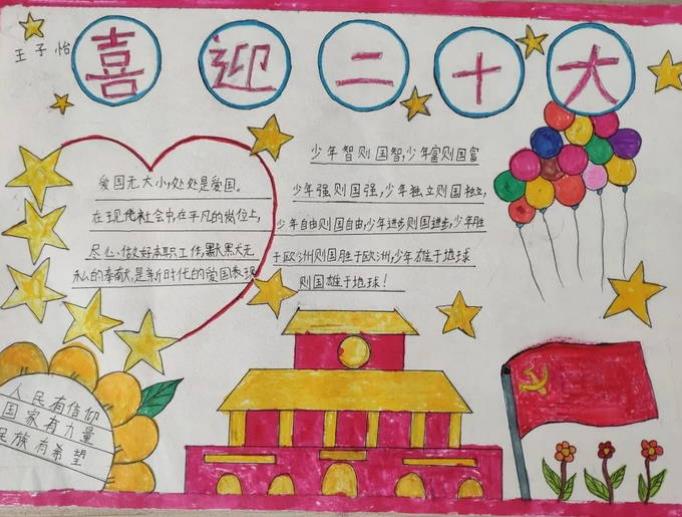 喜迎二十大
王子怡
爱国无大小,处处是爱国。
在现代社会中,在平凡的岗位上,
尽心做好本职工作,默默无
私的奉献,是新时代的爱国表现
少年智则国智,少年富则国富
少年强则国强,少年独立则国独立,
少年自由则国自由,少年进步则国进步,少年胜
于欧洲则国胜于欧洲,少年雄于地球
则国雄于地球!
人民有信仰
国家有力量
民族有希望